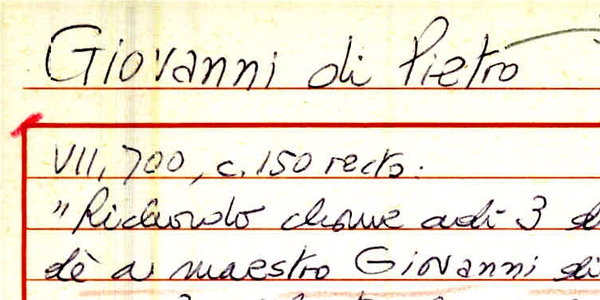 Giovanni di Pietro
VII, 700, c. 150 recto:
"Richordo chome adì 3 d
dè a maestro Giovanni di